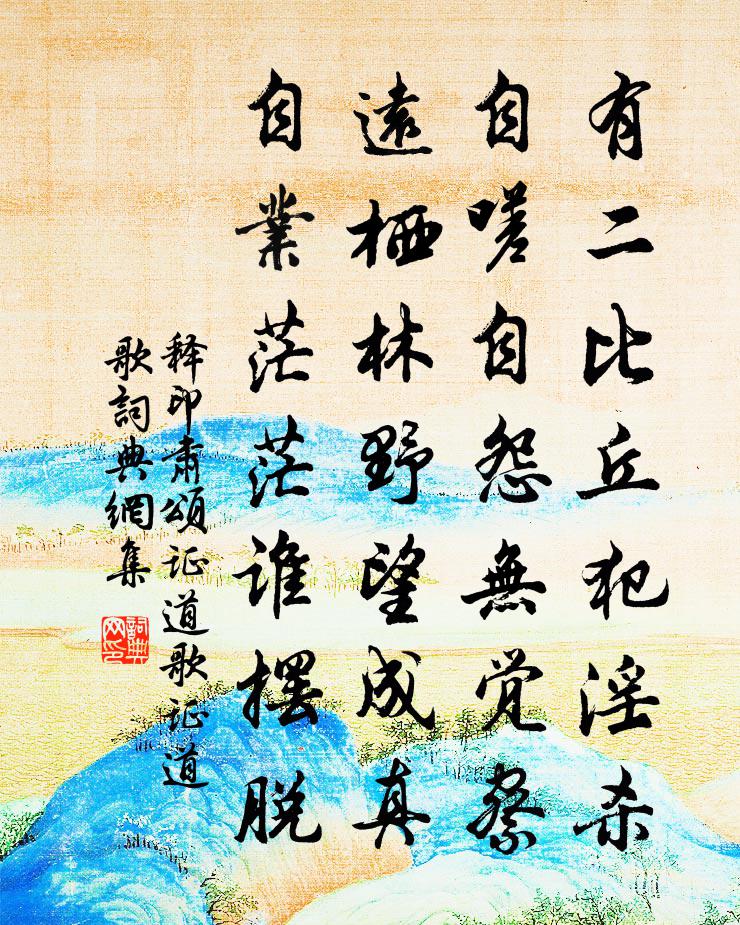 有二比丘犯淫杀
自嗟自怨無觉察
遠栖林野望成真
自業茫茫谁摆脱
释印肃颂证道歌证道
歌詞典網集
詞典网